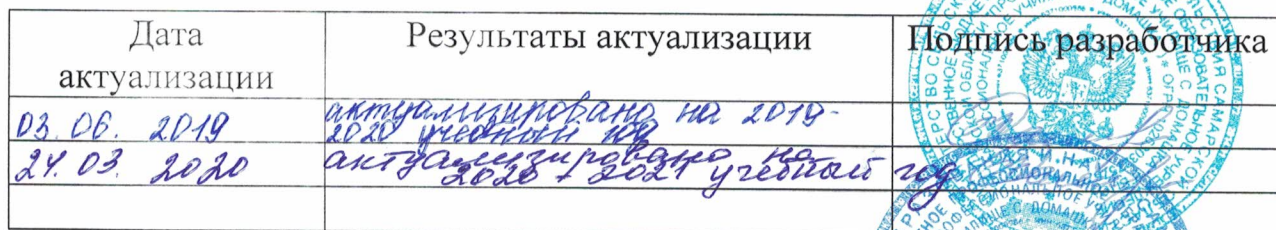 Дата актуализации
Результаты актуализации
Подпись разработчика
03. 06. 2019
актуализировано на 2019-
2020 учебный год
24. 03. 2020
актуализировано на
2020 - 2021 учебный год